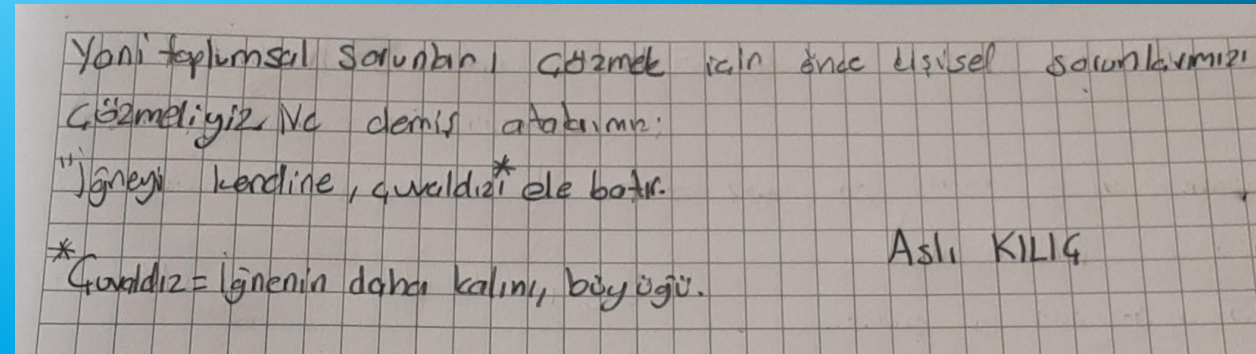 Yani toplumsal sorunları çözmek için önce kişisel sorunlarımızı
çözmeliyiz. Ne demiş atalarımız:
"İğneyi kendine, çuvaldızı* ele batır.
Aslı KILIÇ
*Çuvaldız = İğnenin daha kalını, büyüğü.